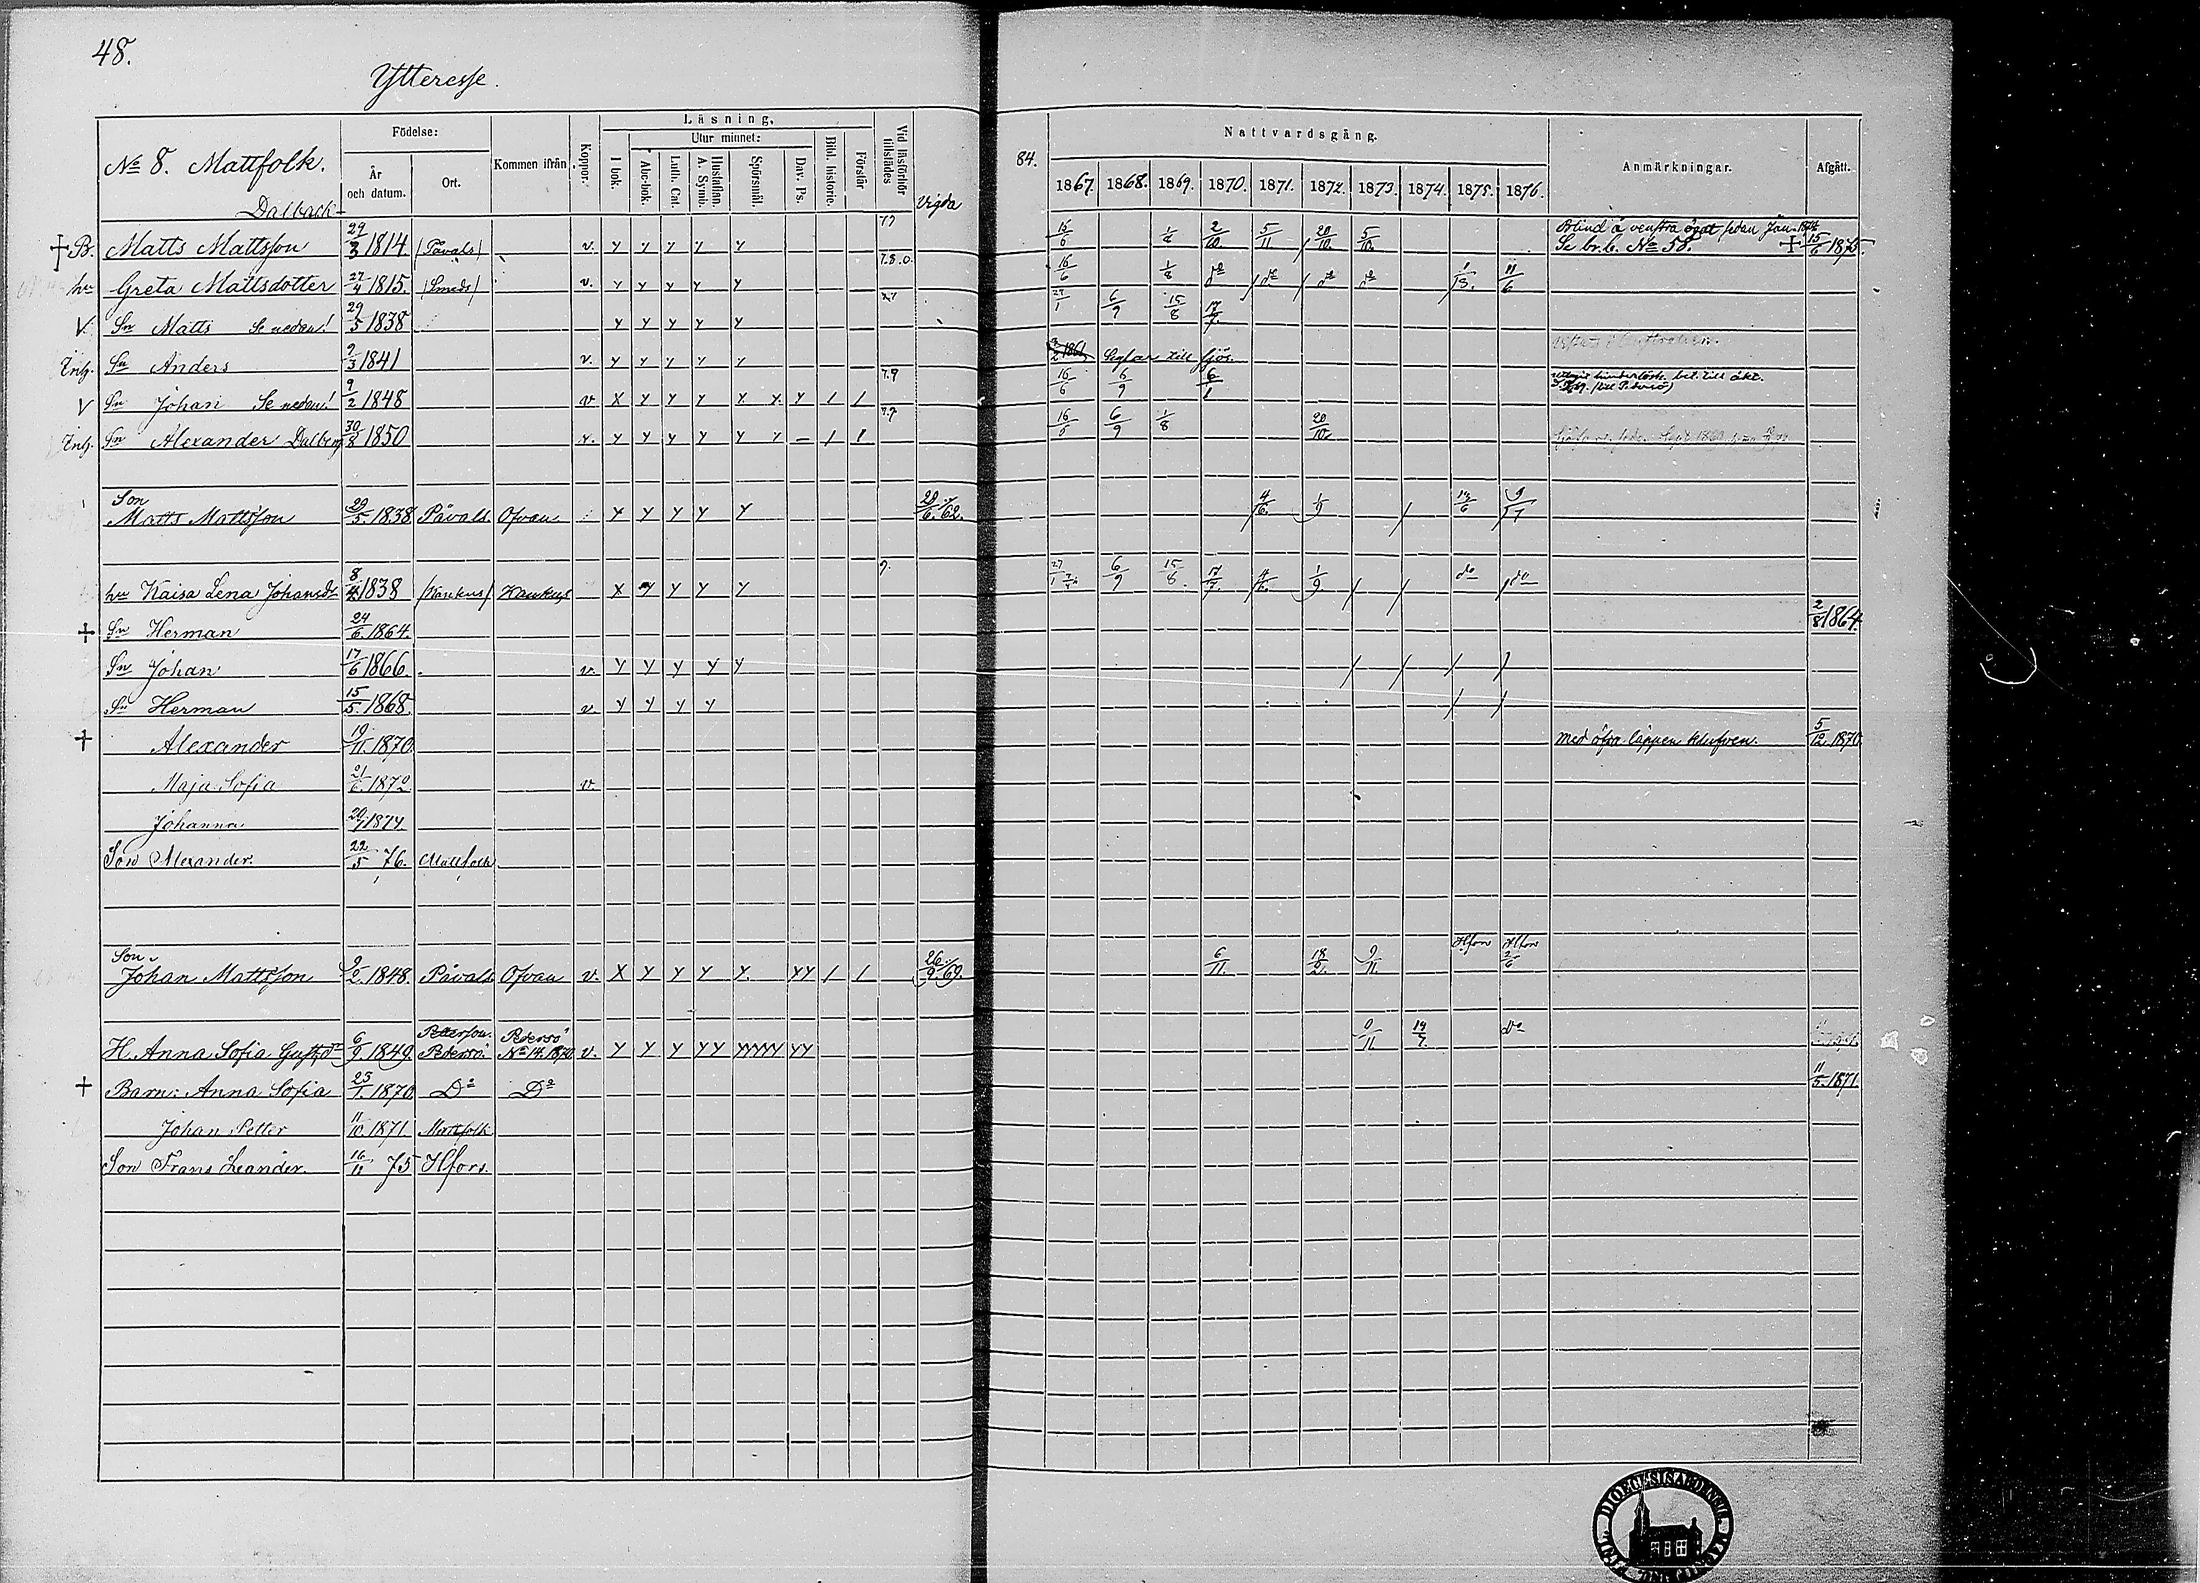 48.
Ytteresse.
Nº 8. Mattfolk.
Födelse:
År och datum.
Ort.
Kommen ifrån
Koppor.
Läsning,
I bok.
Utur minnet:
Abc-bok.
Luth. Cat.
Hustaflan. A. Symb.
Spörsmål.
Dav. Ps.
Bibl. historie.
Förstår
Vid läsförhör tillstädes
vigda
84.
Nattvardsgång.
1867. 1868. 1869. 1870. 1871. 1872. 1873. 1874. 1875. 1876.
Anmärkningar.
Afgått.
Dalback
† B. Matts Mattsson 29/3 1814. (Påvals) v. y y y y y 77 16/6 1/8 2/10. 5/11 / 20/10. 5/10. Blind å venstra ögat sedan Jan.
Se br. b. Nº 58. † 15/6 1875.
hu Greta Mattsdotter 27/4 1815. (Smeds) v. y y y y y 7.8.0. 16/6 1/8 dº / dº / dº dº 11/6
V. Sn Matts Se nedan! 29/5 1838 y y y y y 27/1 6/9 15/8 17/7.
Inh. Sn Anders 9/3 1841 v. y y y y y Seglar till sjös.
V Sn Johan Se nedan! 9/2 1848 v X y y y y y y / / 7.9 16/6 6/9 6/1
Inh. Sn Alexander Dalberg 30/8 1850 v. y y y y y y – / / 7.7 16/6 6/9 1/8 20/10.
Son
Matts Mattsson 29/5. 1838. Påvals. Ofvan y y y y y 29/6. 62. 4/6. 1/9 / 14/6 9/7
hu Kaisa Lena Johansdr 8/4 1838 (Kankus) Kankus X y y y y 9. 27/1 6/9 15/8. 17/7. 4/6. 1/9. / / dº / dº
† Sn Herman 24/6. 1864. 2/8 1864.
Sn Johan 17/6 1866. v. y y y y y / / / /
Sn Herman 15/5. 1868. v. y y y y / /
† Alexander 19/11. 1870. med öfra läppen klufven. 5/12. 1870.
Maja Sofia 21/6. 1872 v.
Johanna 20/7 1874.
Son Alexander. 22/5 76. Mattfolk
Son
Johan Mattsson 9/2. 1848. Påvals. Ofvan v. X y y y y. yy / / 26/9 69. 6/11. 18/2. 9/11. Hfors Hfors 2/6
H. Anna Sofia Gustfdr 6/9. 1849. Petterson Pedersö. Pedersö Nº 14. 1870. v. y y y yy yyyyy yy 9/11. 19/7. Dº
† Barn: Anna Sofia 25/1. 1870. Dº Dº 11/5. 1871.
Johan Petter 11/10. 1871. Mattfolk
Son Frans Leander. 16/11 75 Hfors.